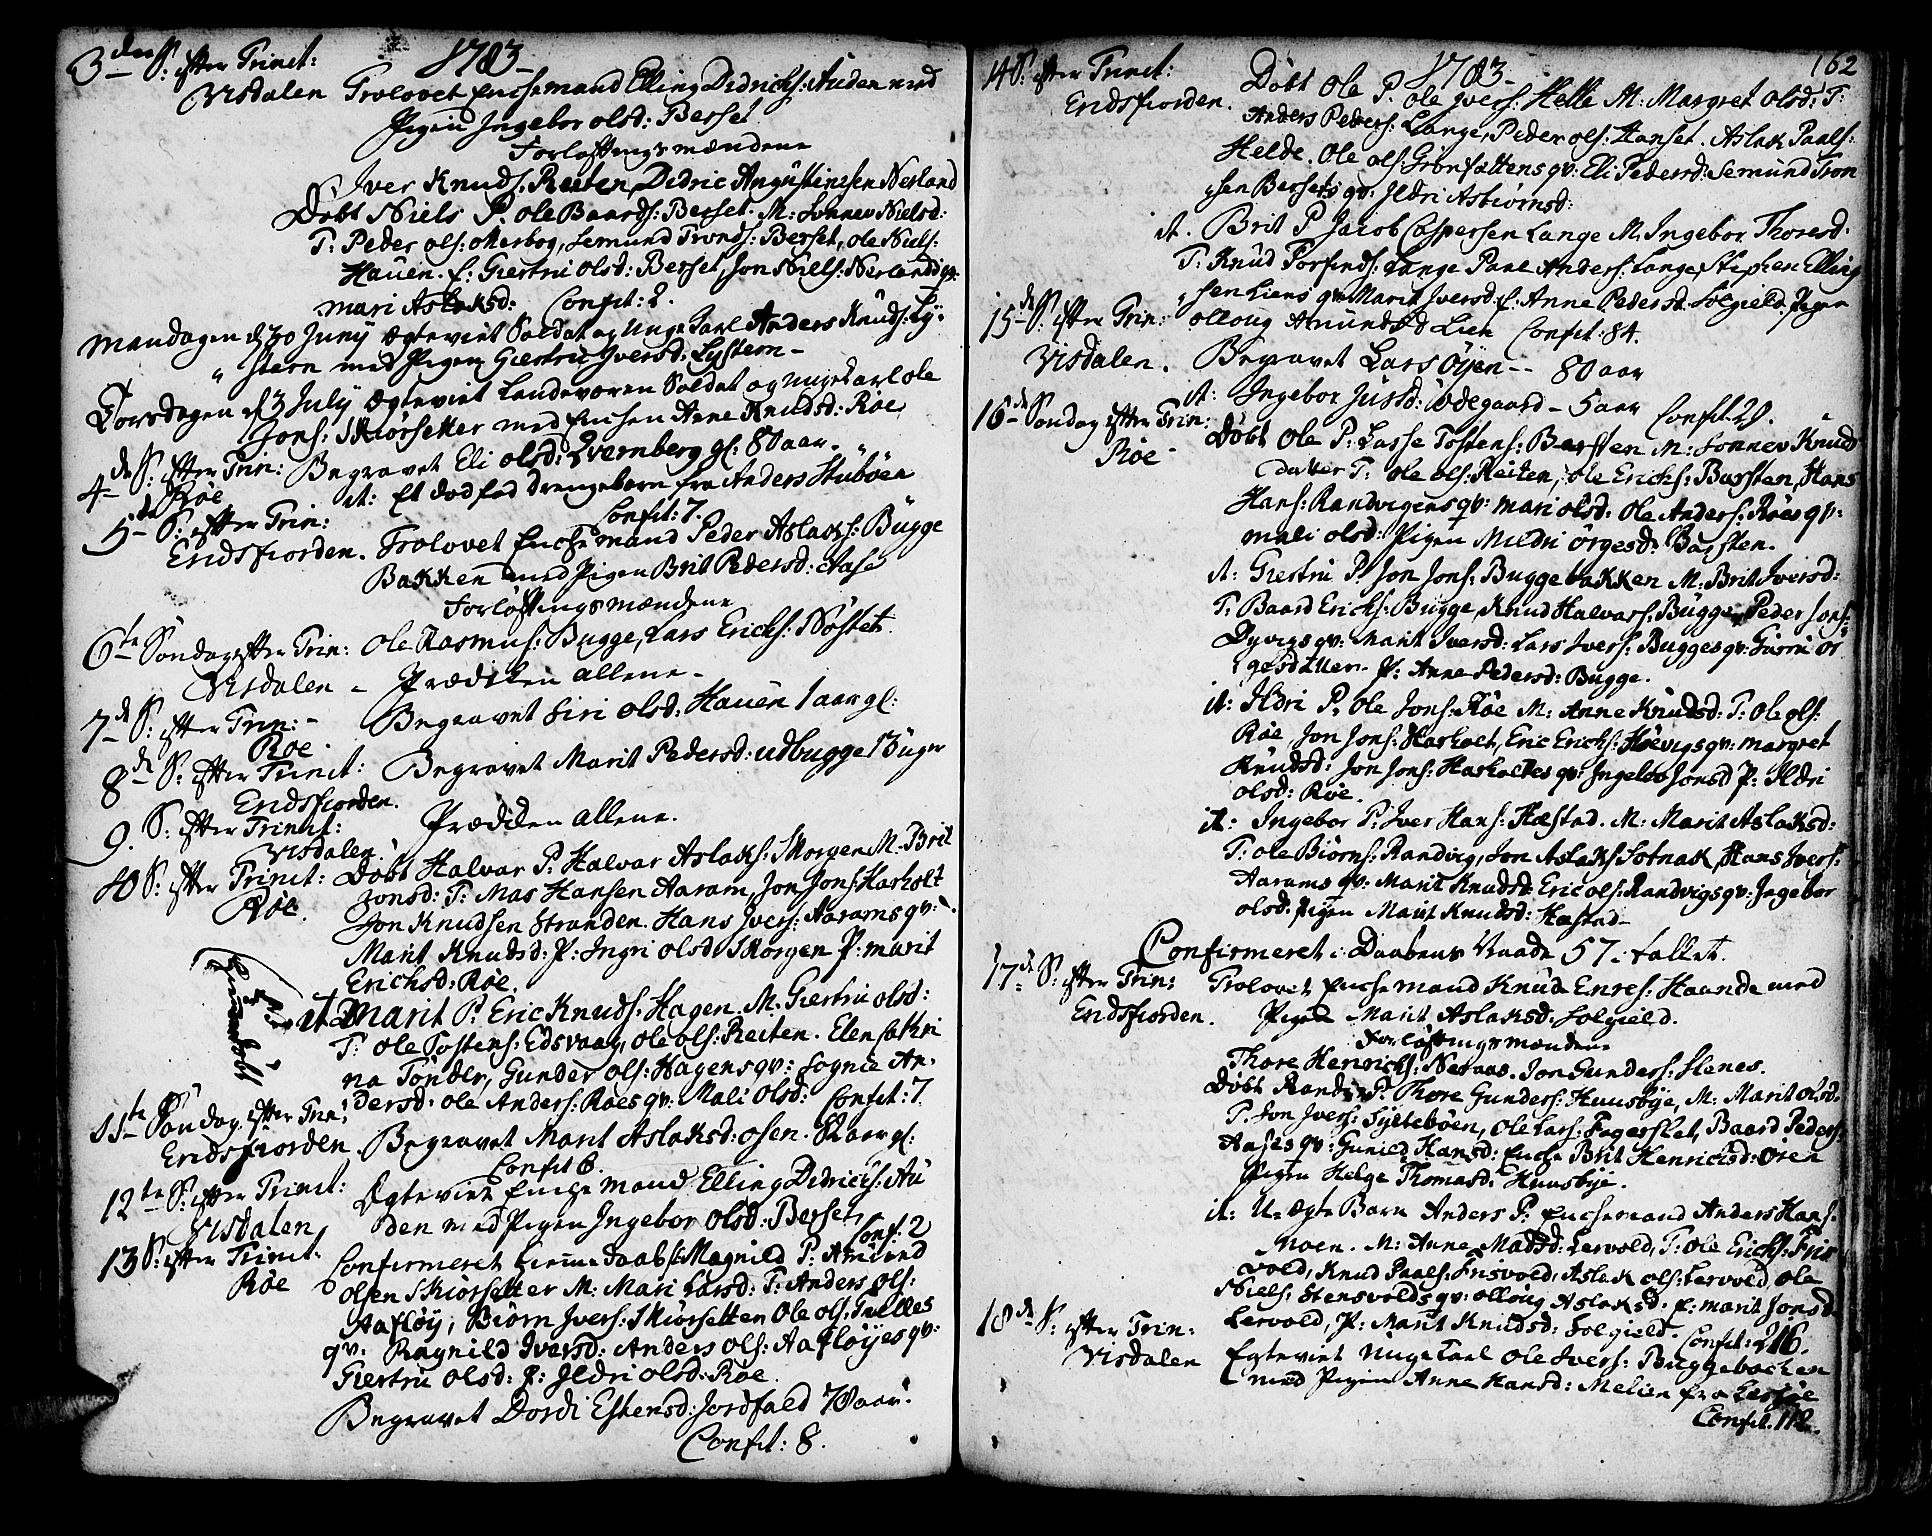 3die S: efter Trinit: 1783
Visdalen Trolovet Enchemand Elling Didrichs: Auden med
Pigen Ingebor olsd: Berset
Forløftnings mændene
Iver Knuds: Reiten, Didric Augustinusen Nerland
Døbt Niels P. Ole Baards: Berset. M: Sonnev Nielsd:
T: Peder ols: Herbog, Semund Tronds: Berset, Ole Niels:
Hauen. E: Giertru olsd: Berset, Jon Niels: Nerlands qv:
mari Aslaksd: Confit: 2.
Mandagen d 30 Juny Ægteviet Soldat og Unge Karl Anders Knuds: Ly-
stern med Pigen Giertru Iversd: Lystern -
Torsdagen d 3 July Ægteviet Landeværen Soldat og Unge Karl Ole
Jons: Skiørsetter med Enchen Anne Knudsd: Røe
4de S: efter Trin: Begravet Eli olsd: Qvernberg gl: 80 aar.
Røe it: Et dødfød drengebarn fra Anders Stubøen
5te S: efter Trin: Confit: 7.
Eridsfiorden. Trolovet Enchemand Peder Aslaks: Bugge
Bakken med Pigen Brit Pedersd: Aase
Forløftningsmændene
6te Søndag efter Trin: Ole Rasmus: Bugge, Lars Erichs: Nøstet.
Visdalen - Prædiken allene -
7de S: efter Trin: - Begravet Siri olsd: Hauen 1 aar gl:
Røe.
8de S: efter Trinit: Begravet Marit Pedersd: udbugge 13 uger
Eridsfiorden.
9. S: efter Trinit: Prædiken allene.
Visdalen.
10 S: efter Trinit: Døbt Halvar P: Halvar Aslaks: Skorgen M: Brit
Røe. Jonsd: T: Mas Hansen Aaram, Jon Jons: Harholt
Jon Knudsen Stranden. Hans Ivers: Aarams qv:
Marit Knudsd: P: Ingri olsd Skorgen P: marit
Erichsd: Røe.
it Marit P: Eric Knuds: Hagen M: Giertru olsd:
T: Ole Tostens: Edsvaag, Ole ols: Reiten. Elen Cathri
na Tønder, Gunder ols: Hagens qv: Sognie An-
dersd: Ole Anders: Røes qv: Mali olsd: Confit: 7
11te Søndag efter Trin:
Eridsfiorden. Begravet Marit Aslaksd: Osen. aar gl:
Confit 6.
12te S: efter Trinit: Ægteviet Enchemand Elling Didrichs: Au
Visdalen den med Pigen Ingebor olsd: Berset, Conf: 2
13 S: efter Trinit: Confirmeret hiemmedaabs: Magnild P: Amund
Røe olsen Skiørsetter M: Mari Larsd: T: Anders ols:
Aafløy, Biørn Ivers: Skiørsetten Ole ols:
qv: Ragnild Iversd: Anders ols: Aafløyes qv:
Giertru olsd: P: Ildri olsd: Røe.
Begravet Dordi Estensd: Jordfald 70 aar.
Confit: 8.
162
14 S: efter Trinit: 1783
Eridsfiorden. Døbt Ole P. Ole Ivers: Helle M: Margret olsd: T:
Anders Peders: Lange, Peder ols: Hanset. Aslak Paals:
Helde. Ole ols: Grønsættens qv: Eli Pedersd: Semund Tron
sen Bersets qv: Ildri Asbiørnsd:
it. Brit P Jacob Caspersen Lange M: Ingebor Thoresd:
T: Knud Torfinds: Lange Paal Anders: Lange, Stephen Elling
sen Liens qv: Marit Iversd: E: Anne Pedersd: Solgield. Pigen
15de S: efter Trin: olloug Amundsd Lien Confit: 84.
Visdalen. Begravet Lars Øyen -- 80 aar
it: Ingebor Jusd: ødegaard - 5 aar Confit. 29.
16de Søndag efter Trin: Døbt Ole P: Lasse Tostens: Barsten M: Sonnev Knud
Røe datter T: Ole ols: Reiten, Ole Erichs: Barsten, Hans
Hans: Randvigens qv: mari olsd: Ole Anders: Røes qv:
mali olsd: Pigen Mildri Ørgesd: Barsten.
it: Giertru P: Jon Jons: Buggebakken M: Brit Iversd:
T: Baard Erichs: Bugge, Knud Halvars: Bugge, Peder Jons:
Dyvigs qv: Marit Iversd: Lars Ivers: Bugges qv: Gurru ør
gesdatter. P: Anne Pedersd: Bugge.
it: Ildri P. Ole Jons: Røe M: Anne Knudsd: T: Ole ols:
Røe, Jon Jons: Harholt, Eric Erichs: Høevigs qv: margret
Knudsd: Jon Jons: Harholtes qv: Ingebor Jonsd P: Ildri
olsd: Røe.
it: Ingebor P: Iver Hans: Hæstad. M: Marit Aslaksd:
T: Ole Biørns: Randvig, Jon Aslaks Sotnak, Hans Ivers:
Aarams qv: Marit Knudsd: Eric ols: Randvigs qv: Ingebor
olsd: Pigen Marit Knudsd: Hæstad -
Confirmeret i Daabens Naade 57 - tallet.
17de S: efter Trin: Trolovet Enchemand Knud Enres: Haande med
Eridsfiorden. Pigen Marit Aslaksd: Solgield.
Forløftnings mændene
Thore Henrichs: Neraas. Jon Gunders: Stenes.
Døbt Randi P: Thore Gunders: Huusbye, M: Marit olsd:
T: Jon Ivers: Syltebøen, Ole Lars: Fagerslet, Baard Peders:
Aases qv: Gunild Hansd: Enche Brit Henrichsd: Øren
Pigen Helge Thomasd: Huusbye.
it: U-ægte Barn Anders P: Enchemand Anders Hans:
Moen. M: Anne Madsd: Lervold, T: Ole Erichs: Fris
vold, Knud Paals: Frisvold, Aslak ols: Lervold Ole
Niels: Stensvolds qv: olloug Aslaksd: E: marit Jonsd
Lervold, P: Marit Knudsd: Solgield. Confit: 216.
18de S: efter Trin: Egteviet Unge Karl Ole Ivers: Buggebacken
Visdalen med Pigen Anne Hansd: Melien fra Lessøe
Confit. 112.